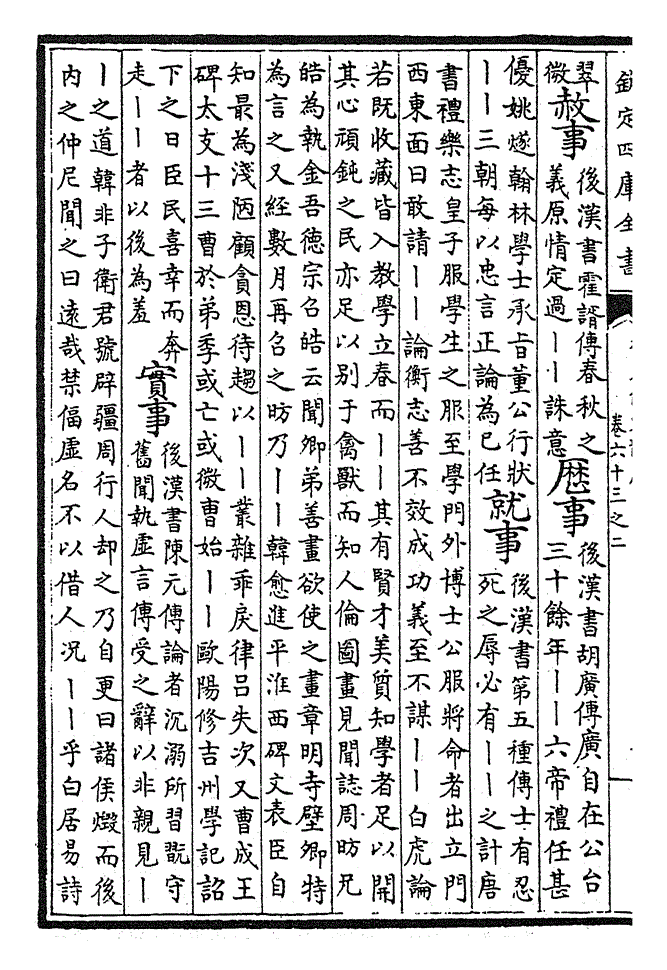 欽定四庫全書
卷六十三之二
翠
微
赦事
後漢書霍諝傳春秋之
義原情定過丨丨誅意
歷事
後漢書胡廣傳廣自在公台
三十餘年丨丨六帝禮任甚
優姚燧翰林學士承旨董公行狀
丨丨三朝每以忠言正論為已任
就事
後漢書第五種傳士有忍
死之辱必有丨丨之計唐
書禮樂志皇子服學生之服至學門外博士公服將命者出立門
西東面曰敢請丨丨論衡志善不效成功義至不謀丨丨白虎論
若既收藏皆入教學立春而丨丨其有賢才美質知學者足以開
其心頑鈍之民亦足以别于禽獸而知人倫圖畫見聞誌周昉兄
皓為執金吾德宗召皓云聞卿弟善畫欲使之畫章明寺壁卿特
為言之又經數月再召之昉乃丨丨韓愈進平淮西碑文表臣自
知最為淺陋顧貪恩待趨以丨丨叢雜乖戾律呂失次又曹成王
碑太支十三曹於弟季或亡或微曹始丨丨歐陽修吉州學記詔
下之日臣民喜幸而奔
走丨丨者以後為羞
實事
後漢書陳元傳論者沉溺所習翫守
舊聞執虛言傳受之辭以非親見丨
丨之道韓非子衛君號辟疆周行人却之乃自更曰諸侯燬而後
内之仲尼聞之曰遠哉禁偪虛名不以借人况丨丨乎白居易詩